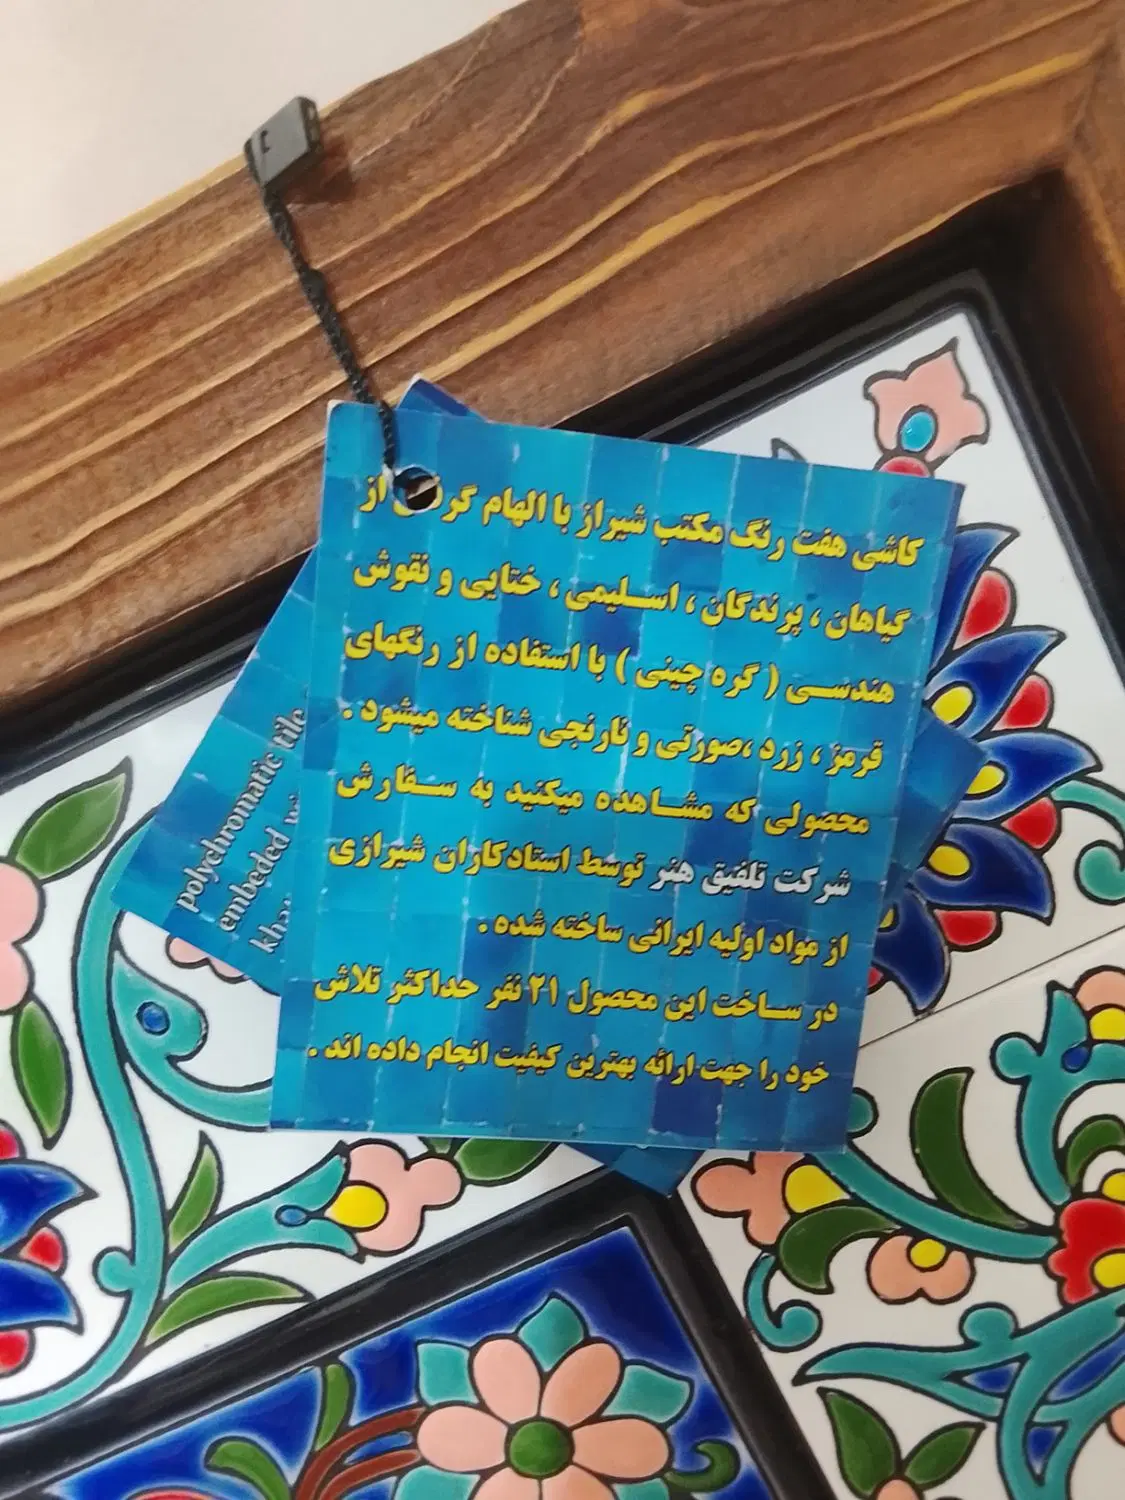 کاشی هفت رنگ مکتب شیراز با الهام از
گیاهان ، پرندگان ، اسلیمی ، ختایی و نقوش
هندسی ( گره چینی ) با استفاده از رنگهای
قرمز ، زرد ،صورتی و نارنجی شناخته میشود .
محصولی که مشاهده میکنید به سفارش
شرکت تلفیق هنر توسط استادکاران شیرازی
از مواد اولیه ایرانی ساخته شده .
در ساخت این محصول ۲۱ نفر حداکثر تلاش
خود را جهت ارائه بهترین کیفیت انجام داده اند .
polychromatic tile
embeded